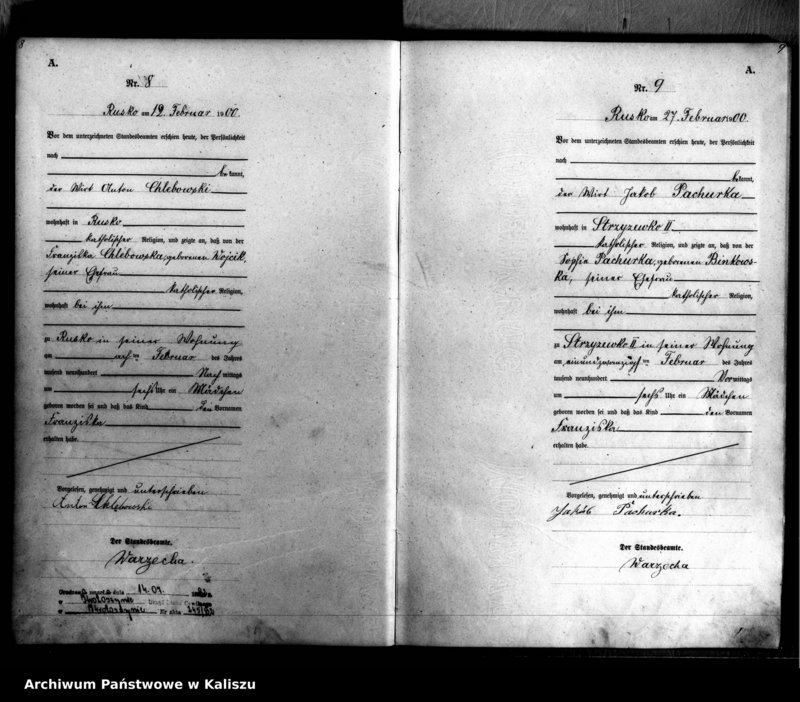 8
A.
Nr. 8
Rusko am 12. Februar 1900.
Vor dem unterzeichneten Standesbeamten erschien heute, der Persönlichkeit
nach
bekannt,
der Wirt Anton Chlebowski
wohnhaft in Rusko
katholischer Religion, und zeigte an, daß von der
Franziska Chlebowska, geborenen Wojcik,
seiner Ehefrau
katholischer Religion,
wohnhaft bei ihm
zu Rusko in seiner Wohnung
am acht ten Februar des Jahres
tausend neunhundert Nachmittags
um sechs Uhr ein Mädchen
geboren worden sei und daß das Kind den Vornamen
Franziska
erhalten habe.
Vorgelesen, genehmigt und unterschrieben
Anton Chlebowski
Der Standesbeamte.
Warzecha.
14.01.
Krotoszynie
Krotoszynie Nr aktu
9
A.
Nr. 9
Rusko am 27. Februar 1900.
Vor dem unterzeichneten Standesbeamten erschien heute, der Persönlichkeit
nach
bekannt,
der Wirt Jakob Pachurka
wohnhaft in Strzyzewko II
katholischer Religion, und zeigte an, daß von der
Sophia Pachurka, geborenen Binkows-
ka, seiner Ehefrau
katholischer Religion,
wohnhaft bei ihm
zu Strzyzewko II in seiner Wohnung
am einundzwanzigsten Februar des Jahres
tausend neunhundert Vormittags
um sechs Uhr ein Mädchen
geboren worden sei und daß das Kind den Vornamen
Franziska
erhalten habe.
Vorgelesen, genehmigt und unterschrieben
Jakób Pachurka.
Der Standesbeamte.
Warzecha
Archiwum Państwowe w Kaliszu